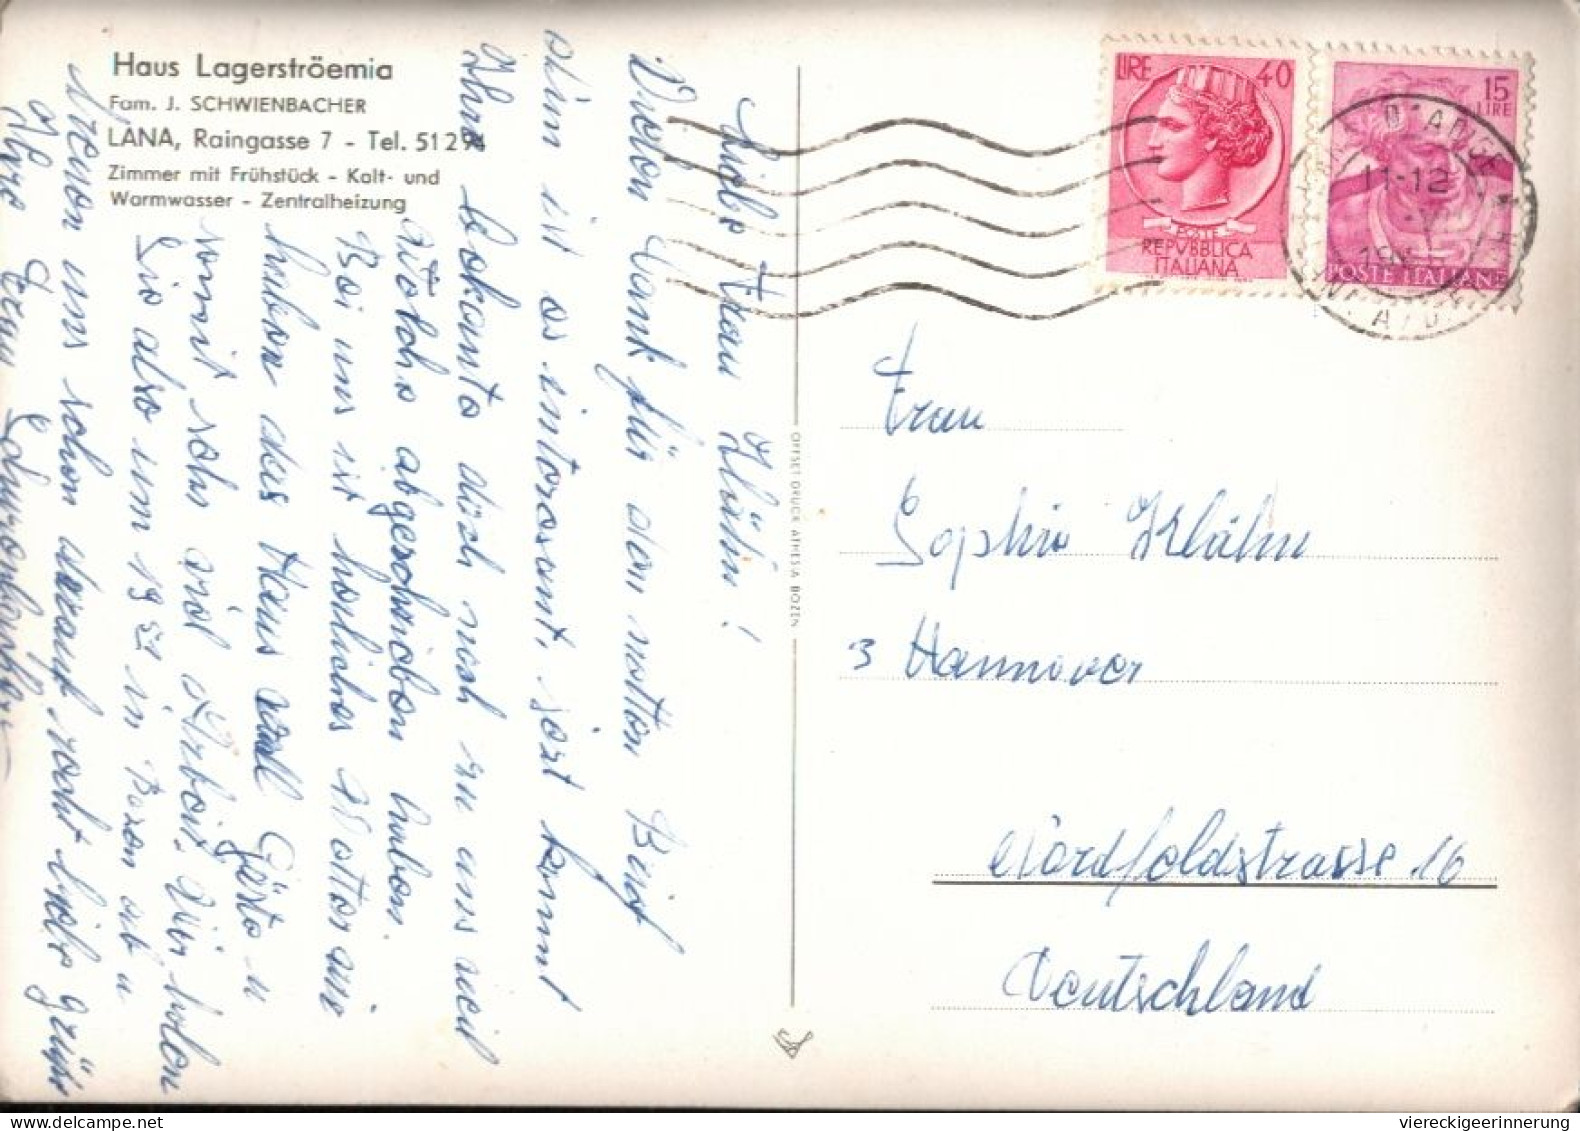 Haus Lagerströemia
Fam. J. SCHWIENBACHER
LANA, Raingasse 7 - Tel. 51294
Zimmer mit Frühstück - Kalt- und
Warmwasser - Zentralheizung
Liebe Frau
Vielen Dank für den netten Brief
ist es interessant, jezt kommt
Ihre bekante auch noch zu uns weil
abgeschrieben haben.
Bei uns ist herliches Wetter wir
haben das Haus voll Gäste u
somit sehr viel Arbeit. Wir holen
Sie also um 19 in Bozen ab u
freuen uns schon darauf, recht liebe Grüße
Ihre Fam Schwienbacher
OFFSET DRUCK ATHESA BOZEN
LIRE 40
POSTE
REPVBBLICA
ITALIANA
15
LIRE
POSTE ITALIANE
11-12
Frau
Sophie Klähn
3 Hannover
Nordfeldstrasse 16
Deutschland
viereckigeerinnerung